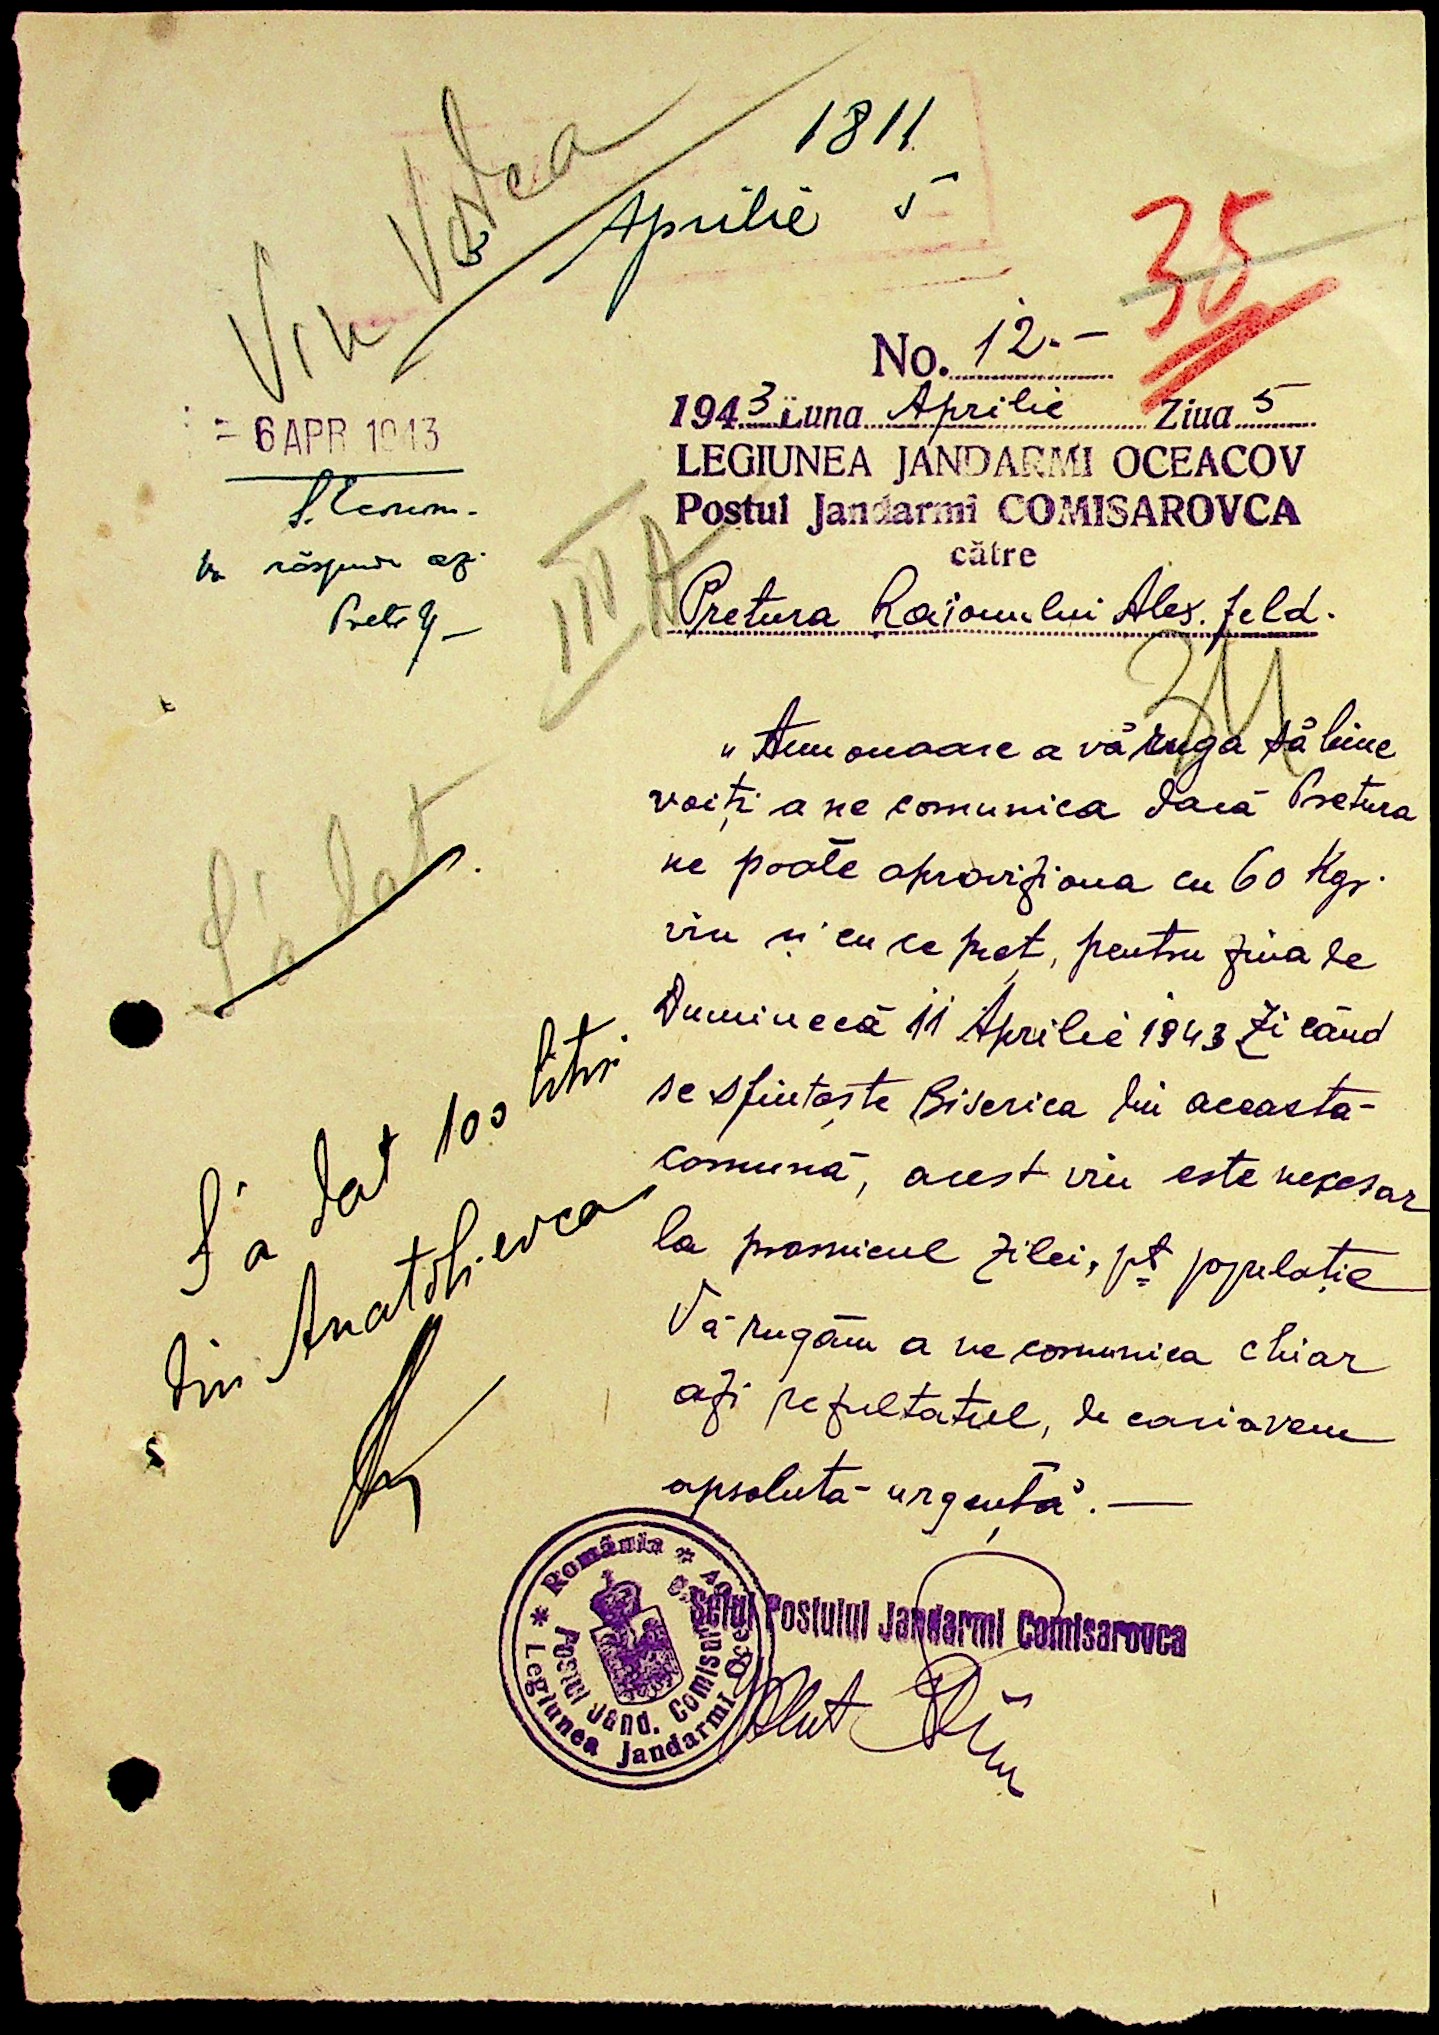 1811
Aprilie 5
Vin Vodca
35
No. 12.-
1943 Luna Aprilie Ziua 5
LEGIUNEA JANDARMI OCEACOV
Postul Jandarmi COMISAROVCA
către
Pretura Raionului Alex.feld.
- 6 APR 1943
S. Econom.
răspunde azi
III A
„Am onoare a vă ruga să bine
voiți a ne comunica dacă Pretura
ne poate aproviziona cu 60 Kgr.
vin și cu ce preț, pentru ziua de
Duminecă 11 Aprilie 1943 zi când
se sfințește Biserica din aceasta
comună, acest vin este necesar
la praznicul zilei, pt populație
Vă rugăm a ne comunica chiar
azi rezultatul, de cari avem
apsolută urgență".—
S'a dat
S'a dat 100 litri
din Anatolievca
* România *
Legiunea Jandarmi Oceacov
Postul Jand. Comisarovca
Șeful Postului Jandarmi Comisarovca